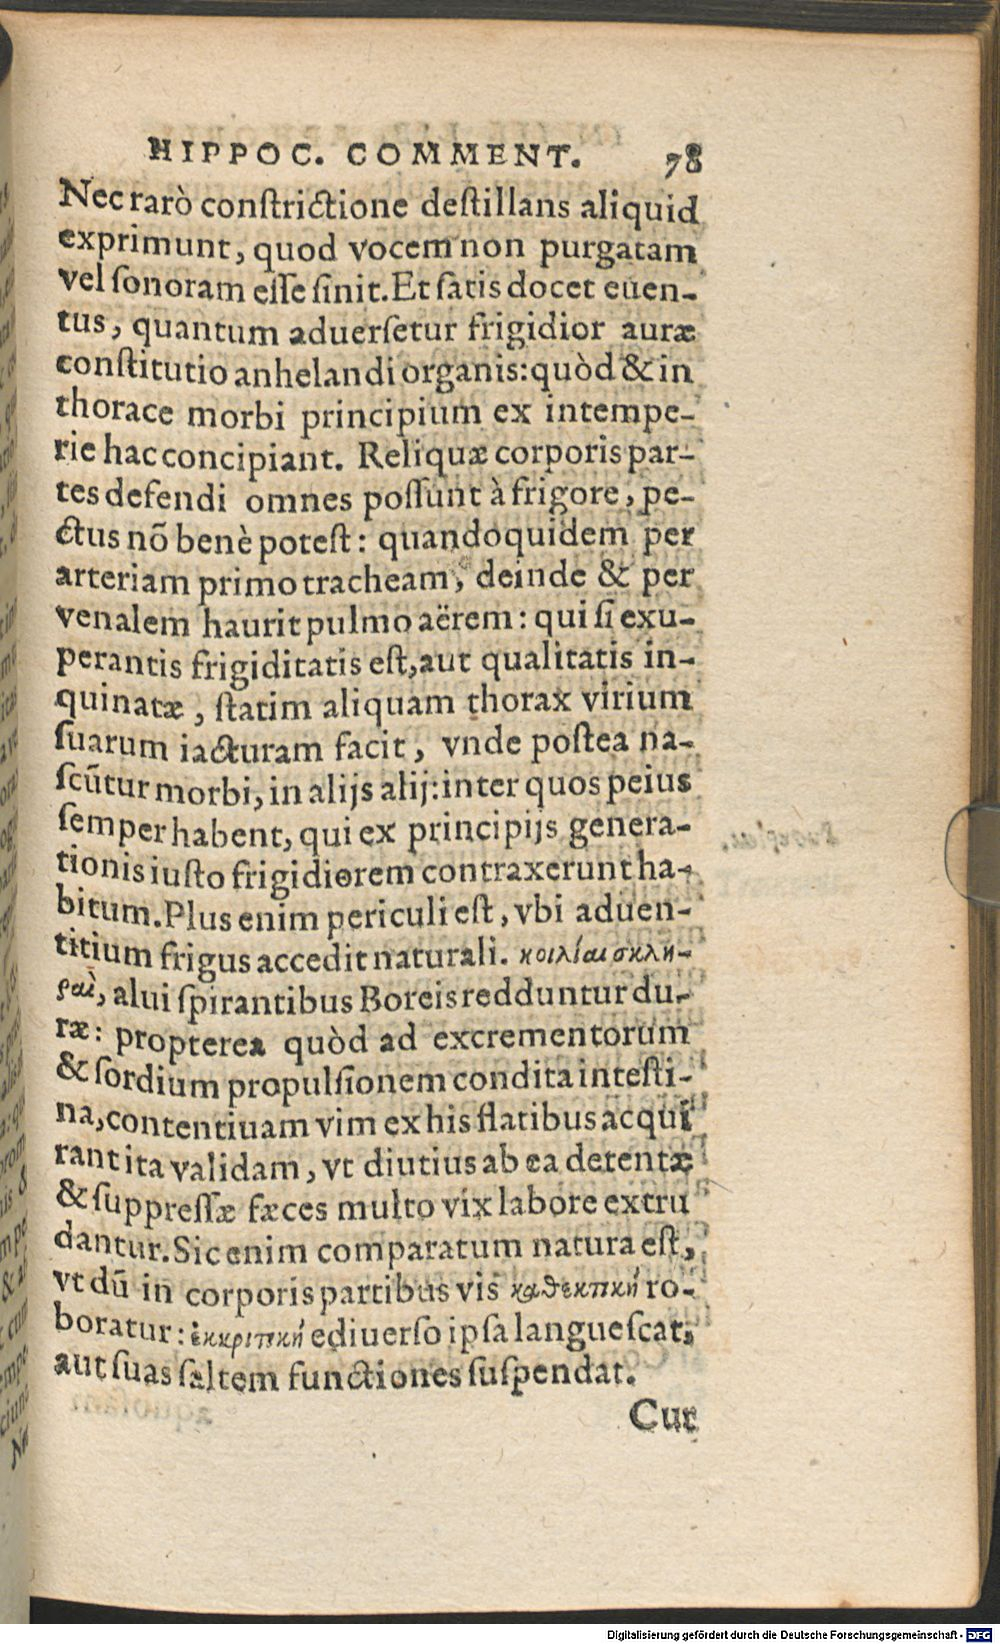 HIPPOC. COMMENT. 78
Nec rarò constrictione destillans aliquid
exprimunt, quod vocem non purgatam
vel sonoram esse sinit. Et satis docet euen-
tus, quantum aduersetur frigidior auræ
constitutio anhelandi organis: quòd & in
thorace morbi principium ex intempe-
rie hac concipiant. Reliquæ corporis par-
tes defendi omnes possunt à frigore, pe-
ctus nõ benè potest: quandoquidem per
arteriam primo tracheam, deinde & per
venalem haurit pulmo aërem: qui si exu-
perantis frigiditatis est, aut qualitatis in-
quinatæ, statim aliquam thorax virium
suarum iacturam facit, vnde postea na-
scũtur morbi, in alijs alij: inter quos peius
semper habent, qui ex principijs genera-
tionis iusto frigidiorem contraxerunt ha-
bitum. Plus enim periculi est, vbi aduen-
titium frigus accedit naturali. κοιλίαι σκλη-
ραὶ, alui spirantibus Boreis redduntur du-
ræ: propterea quòd ad excrementorum
& sordium propulsionem condita intesti-
na, contentiuam vim ex his flatibus acqui
rant ita validam, vt diutius ab ea detentæ
& suppressæ fæces multo vix labore extru
dantur. Sic enim comparatum natura est,
vt dũ in corporis partibus vis καθεκτικὴ ro-
boratur: ἐκκριτικὴ ediuerso ipsa languescat,
aut suas saltem functiones suspendat.
Cur
Digitalisierung gefördert durch die Deutsche Forschungsgemeinschaft - DFG